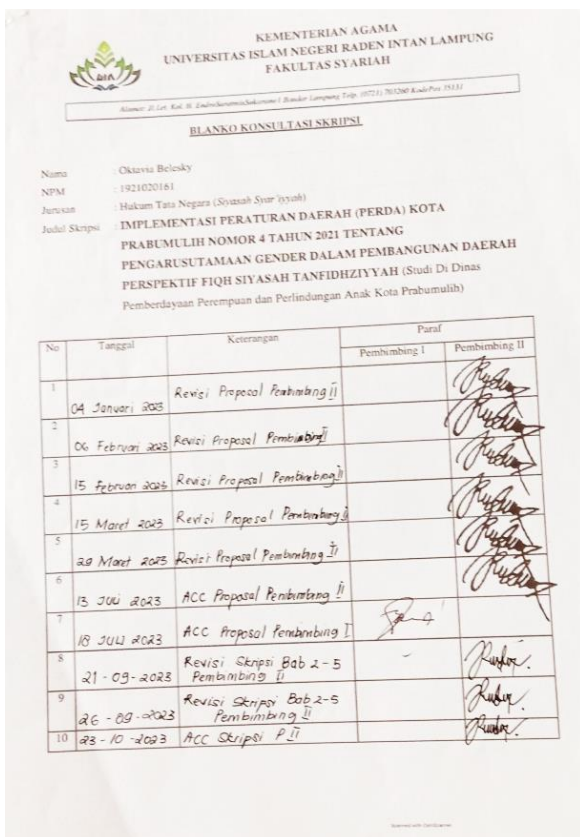 KEMENTERIAN AGAMA
UNIVERSITAS ISLAM NEGERI RADEN INTAN LAMPUNG
FAKULTAS SYARIAH
Alamat: Jl. Let. Kol. H. Endro Suratmin Sukarame I Bandar Lampung Telp. (0721) 703260 KodePos 35131
BLANKO KONSULTASI SKRIPSI
Nama : Oktavia Belesky
NPM : 1921020161
Jurusan : Hukum Tata Negara (Siyasah Syar'iyyah)
Judul Skripsi : IMPLEMENTASI PERATURAN DAERAH (PERDA) KOTA
PRABUMULIH NOMOR 4 TAHUN 2021 TENTANG
PENGARUSUTAMAAN GENDER DALAM PEMBANGUNAN DAERAH
PERSPEKTIF FIQH SIYASAH TANFIDHZIYYAH (Studi Di Dinas
Pemberdayaan Perempuan dan Perlindungan Anak Kota Prabumulih)
No Tanggal Keterangan Paraf
Pembimbing I Pembimbing II
1 04 Januari 2023 Revisi Proposal Pembimbing II
2 06 Februari 2023 Revisi Proposal Pembimbing II
3 15 Februari 2023 Revisi Proposal Pembimbing II
4 15 Maret 2023 Revisi Proposal Pembimbing II
5 29 Maret 2023 Revisi Proposal Pembimbing II
6 13 Juli 2023 ACC Proposal Pembimbing II
7 18 Juli 2023 ACC Proposal Pembimbing I
8 21 - 09 - 2023 Revisi Skripsi Bab 2-5 -
Pembimbing II
9 26 - 09 - 2023 Revisi Skripsi Bab 2-5
Pembimbing II
10 23 - 10 - 2023 ACC Skripsi P.II
Scanned with CamScanner